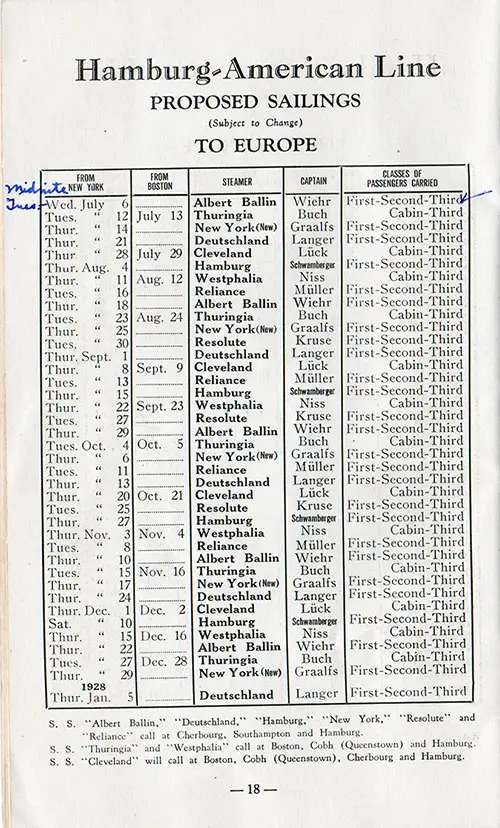 Hamburg-American Line
PROPOSED SAILINGS
(Subject to Change)
TO EUROPE
FROM NEW YORK FROM BOSTON STEAMER CAPTAIN CLASSES OF PASSENGERS CARRIED
Midnite
Tues.
Wed. July 6 Albert Ballin Wiehr First-Second-Third
Tues. “ 12 July 13 Thuringia Buch Cabin-Third
Thur. “ 14 New York (New) Graalfs First-Second-Third
Thur. “ 21 Deutschland Langer First-Second-Third
Thur “ 28 July 29 Cleveland Lück Cabin-Third
Thur. Aug. 4 Hamburg Schwamberger First-Second-Third
Thur. “ 11 Aug. 12 Westphalia Niss Cabin-Third
Tues. “ 16 Reliance Müller First-Second-Third
Thur. “ 18 Albert Ballin Wiehr First-Second-Third
Tues. “ 23 Aug. 24 Thuringia Buch Cabin-Third
Thur. “ 25 New York (New) Graalfs First-Second-Third
Tues. “ 30 Resolute Kruse First-Second-Third
Thur. Sept. 1 Deutschland Langer First-Second-Third
Thur. “ 8 Sept. 9 Cleveland Lück Cabin-Third
Tues. “ 13 Reliance Müller First-Second-Third
Thur. “ 15 Hamburg Schwamberger First-Second-Third
Thur. “ 22 Sept. 23 Westphalia Niss Cabin-Third
Tues. “ 27 Resolute Kruse First-Second-Third
Thur. “ 29 Albert Ballin Wiehr First-Second-Third
Tues. Oct. 4 Oct. 5 Thuringia Buch Cabin-Third
Thur. “ 6 New York (New) Graalfs First-Second-Third
Tues. “ 11 Reliance Müller First-Second-Third
Thur. “ 13 Deutschland Langer First-Second-Third
Thur. “ 20 Oct. 21 Cleveland Lück Cabin-Third
Tues. “ 25 Resolute Kruse First-Second-Third
Thur. “ 27 Hamburg Schwamberger First-Second-Third
Thur. Nov. 3 Nov. 4 Westphalia Niss Cabin-Third
Tues. “ 8 Reliance Müller First-Second-Third
Thur. “ 10 Albert Ballin Wiehr First-Second-Third
Tues. “ 15 Nov. 16 Thuringia Buch Cabin-Third
Thur. “ 17 New York (New) Graalfs First-Second-Third
Thur. “ 24 Deutschland Langer First-Second-Third
Thur. Dec. 1 Dec. 2 Cleveland Lück Cabin-Third
Sat. “ 10 Hamburg Schwamberger First-Second-Third
Thur. “ 15 Dec. 16 Westphalia Niss Cabin-Third
Thur. “ 22 Albert Ballin Wiehr First-Second-Third
Tues. “ 27 Dec. 28 Thuringia Buch Cabin-Third
Thur. “ 29 New York (New) Graalfs First-Second-Third
1928
Thur. Jan. 5 Deutschland Langer First-Second-Third
S. S. "Albert Ballin," "Deutschland," "Hamburg," "New York," "Resolute" and
"Reliance" call at Cherbourg, Southampton and Hamburg.
S. S. "Thuringia" and "Westphalia" call at Boston, Cobh (Queenstown) and Hamburg.
S. S. "Cleveland" will call at Boston, Cobh (Queenstown), Cherbourg and Hamburg.
— 18 —